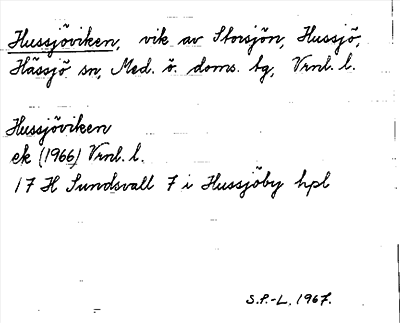 Hussjöviken, vik av Storsjön, Hussjö,
Hässjö sn, Med. ö. doms. tg, Vrnl. l.
Hussjöviken
ek (1966) Vrnl. l.
17 H Sundsvall 7 i Hussjöby hpl
S.P.-L. 1967.